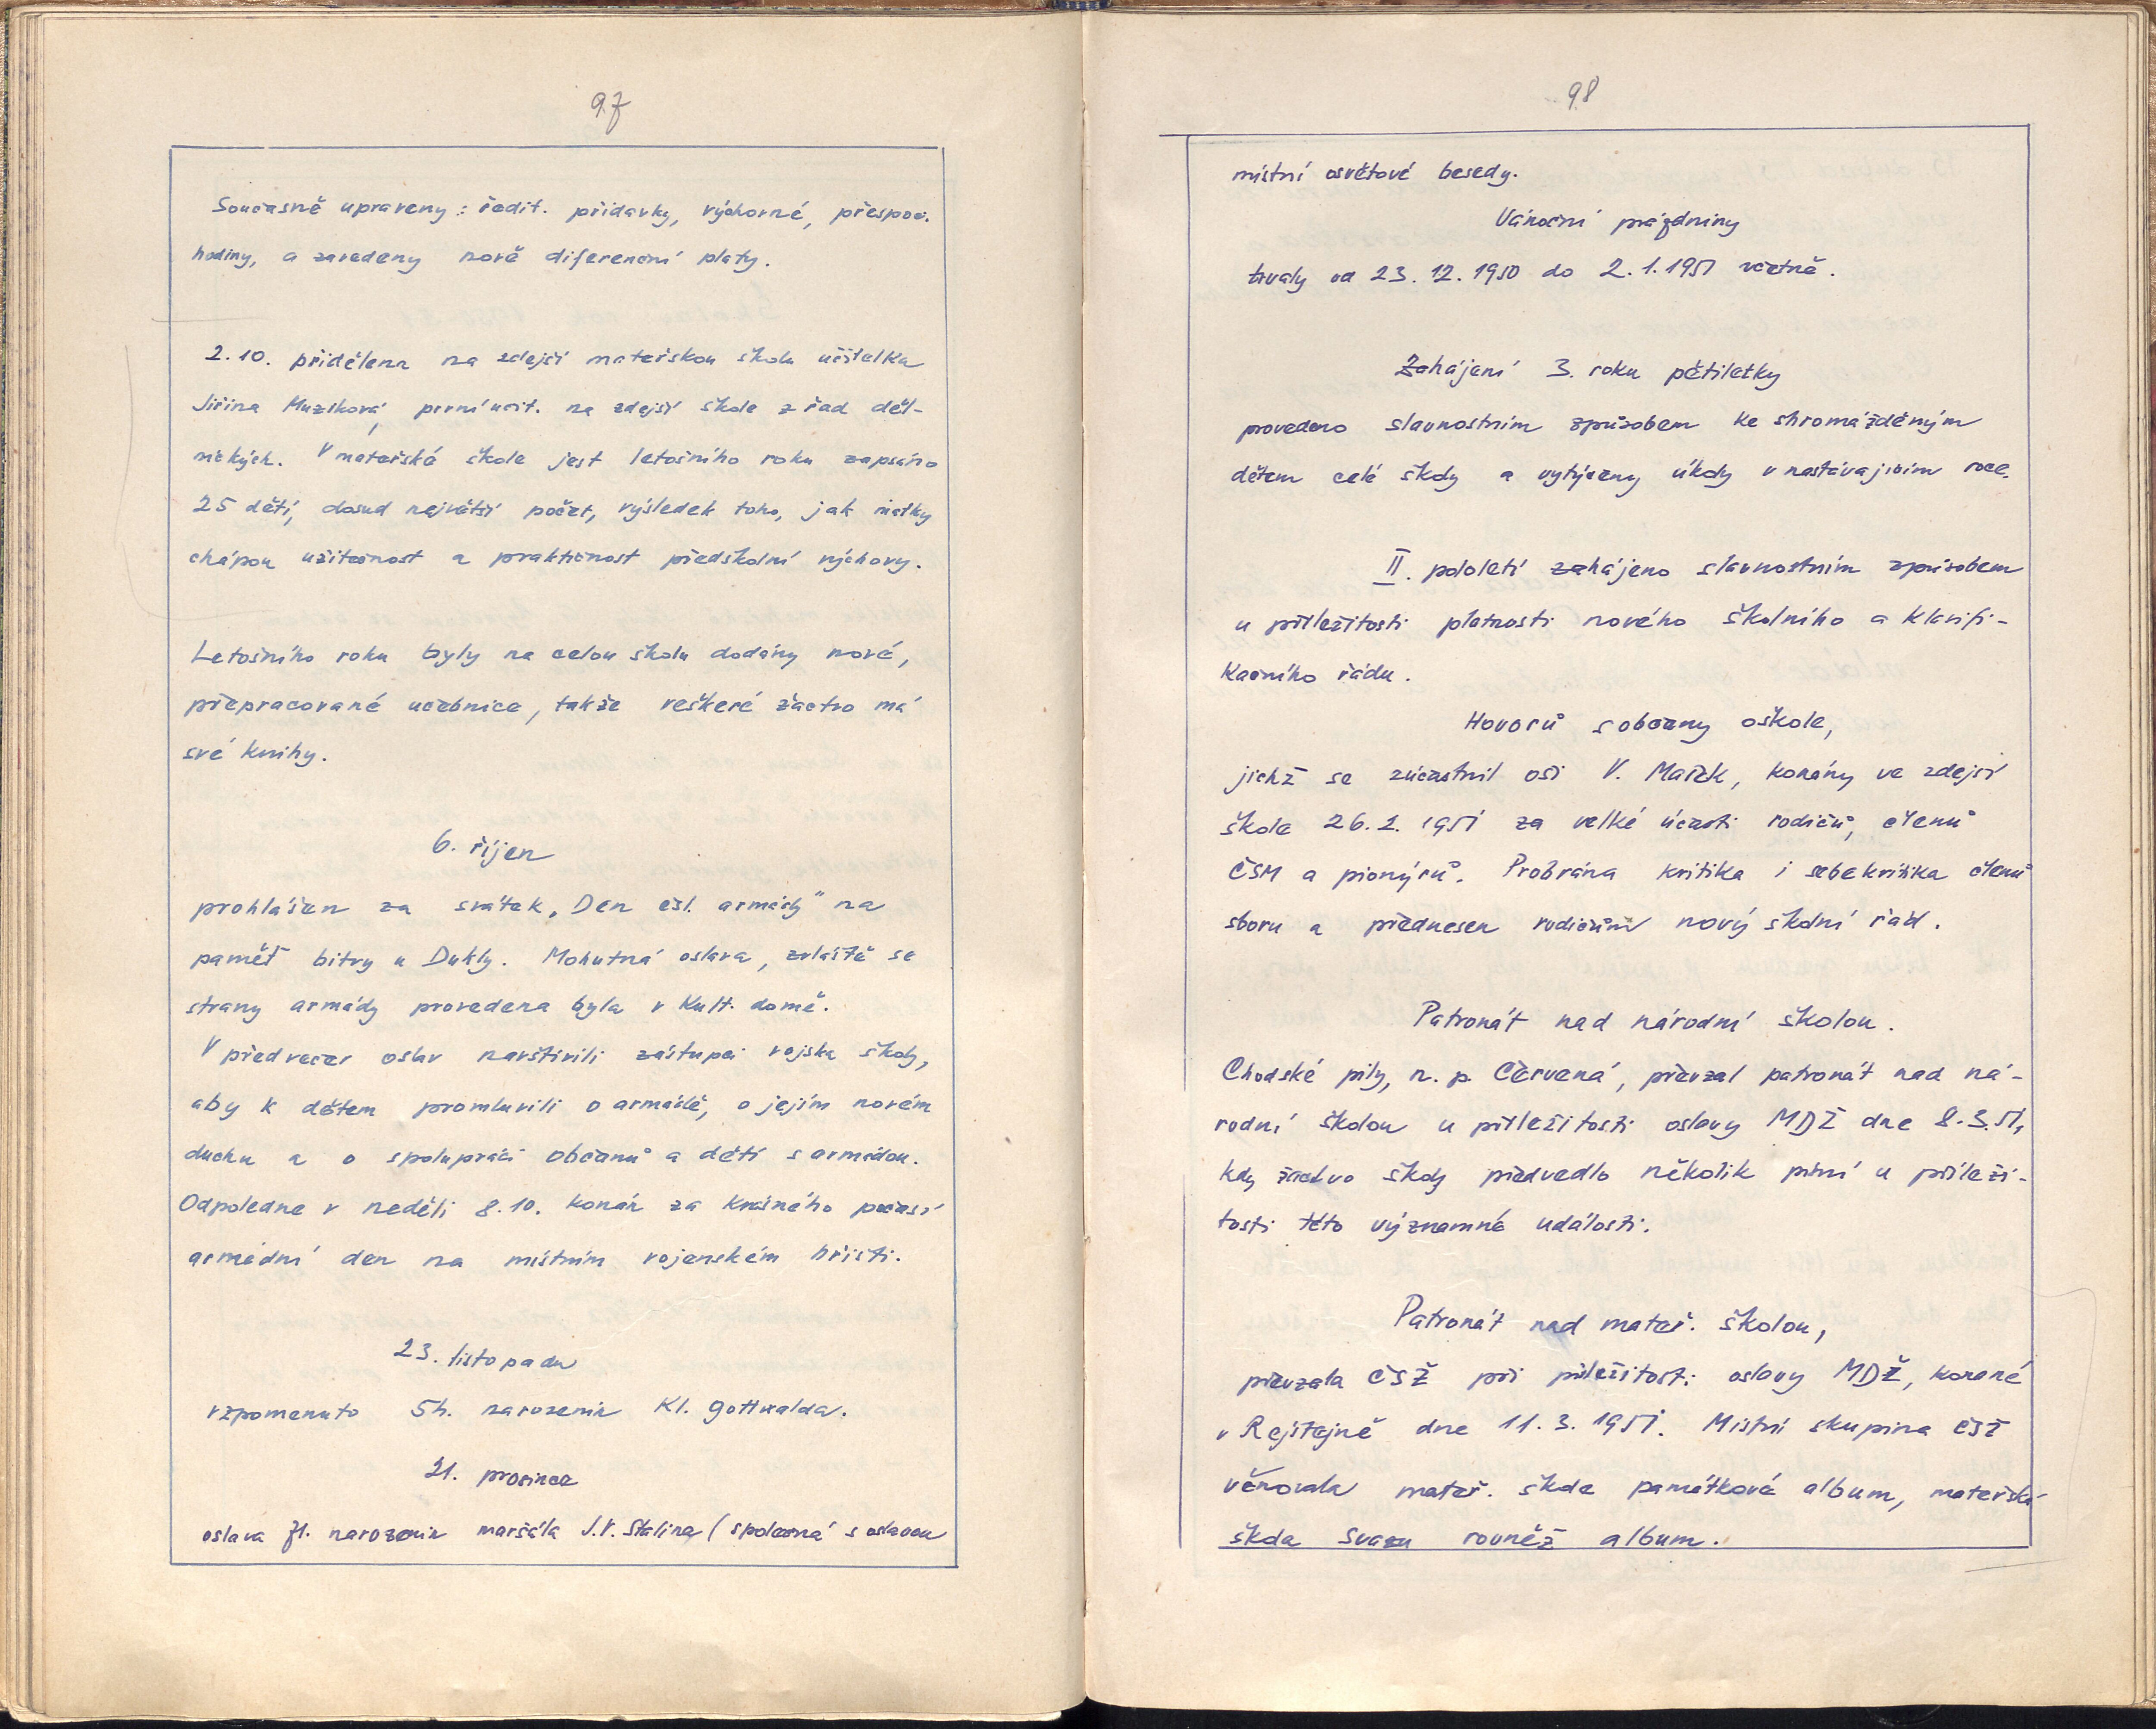 97
Současně upraveny: ředit. přídavky, výchovné, přespoč.
hodiny, a zavedeny nově diferenční platy.
2.10. přidělena na zdejší mateřskou školu učitelka
Jiřina Muzíková, první učit. na zdejší škole z řad děl-
nických. V mateřské škole jest letošního roku zapsáno
25 dětí, dosud největší počet, výsledek toho, jak matky
chápou užitečnost a praktičnost předškolní výchovy.
Letošního roku byly na celou školu dodány nové,
přepracované učebnice, takže veškeré žactvo má
své knihy.
6. říjen
prohlášen za svátek „Den čsl. armády" na
paměť bitvy u Dukly. Mohutná oslava, zvláště se
strany armády provedena byla v Kult. domě.
V předvečer oslav navštívili zástupci vojska školy,
aby k dětem promluvili o armádě, o jejím novém
duchu a o spolupráci občanů a dětí s armádou.
Odpoledne v neděli 8.10. konán za krásného počasí
armádní den na místním vojenském hřišti.
23. listopadu
vzpomenuto 54. narozenin Kl. Gottwalda.
21. prosince
oslava 71. narozenin maršála J.V. Stalina (společná s oslavou
98
místní osvětové besedy.
Vánoční prázdniny
trvaly od 23.12.1950 do 2.1.1951 včetně.
Zahájení 3. roku pětiletky
provedeno slavnostním způsobem ke shromážděným
dětem celé školy a vytýčeny úkoly v nastávajícím roce.
II. pololetí zahájeno slavnostním způsobem
u příležitosti platnosti nového školního a klasifi-
kačního řádu.
Hovorů s občany o škole,
jichž se zúčastnil oši V. Mařík, konány ve zdejší
škole 26.2. 1951 za velké účasti rodičů, členů
ČSM a pionýrů. Probrána kritika i sebekritika členů
sboru a přednesen rodičům nový školní řád.
Patronát nad národní školou.
Chodské pily, n.p. Červená, převzal patronát nad ná-
rodní školou u příležitosti oslavy MDŽ dne 8.3.51,
kdy žactvo školy předvedlo několik písní u příleži-
tosti této významné události.
Patronát nad mateř. školou,
převzala ČSŽ při příležitosti oslavy MDŽ, konané
v Rejštejně dne 11.3.1951. Místní skupina ČSŽ
věnovala mateř. škole památkové album, mateřská
škola Svazu rovněž album.